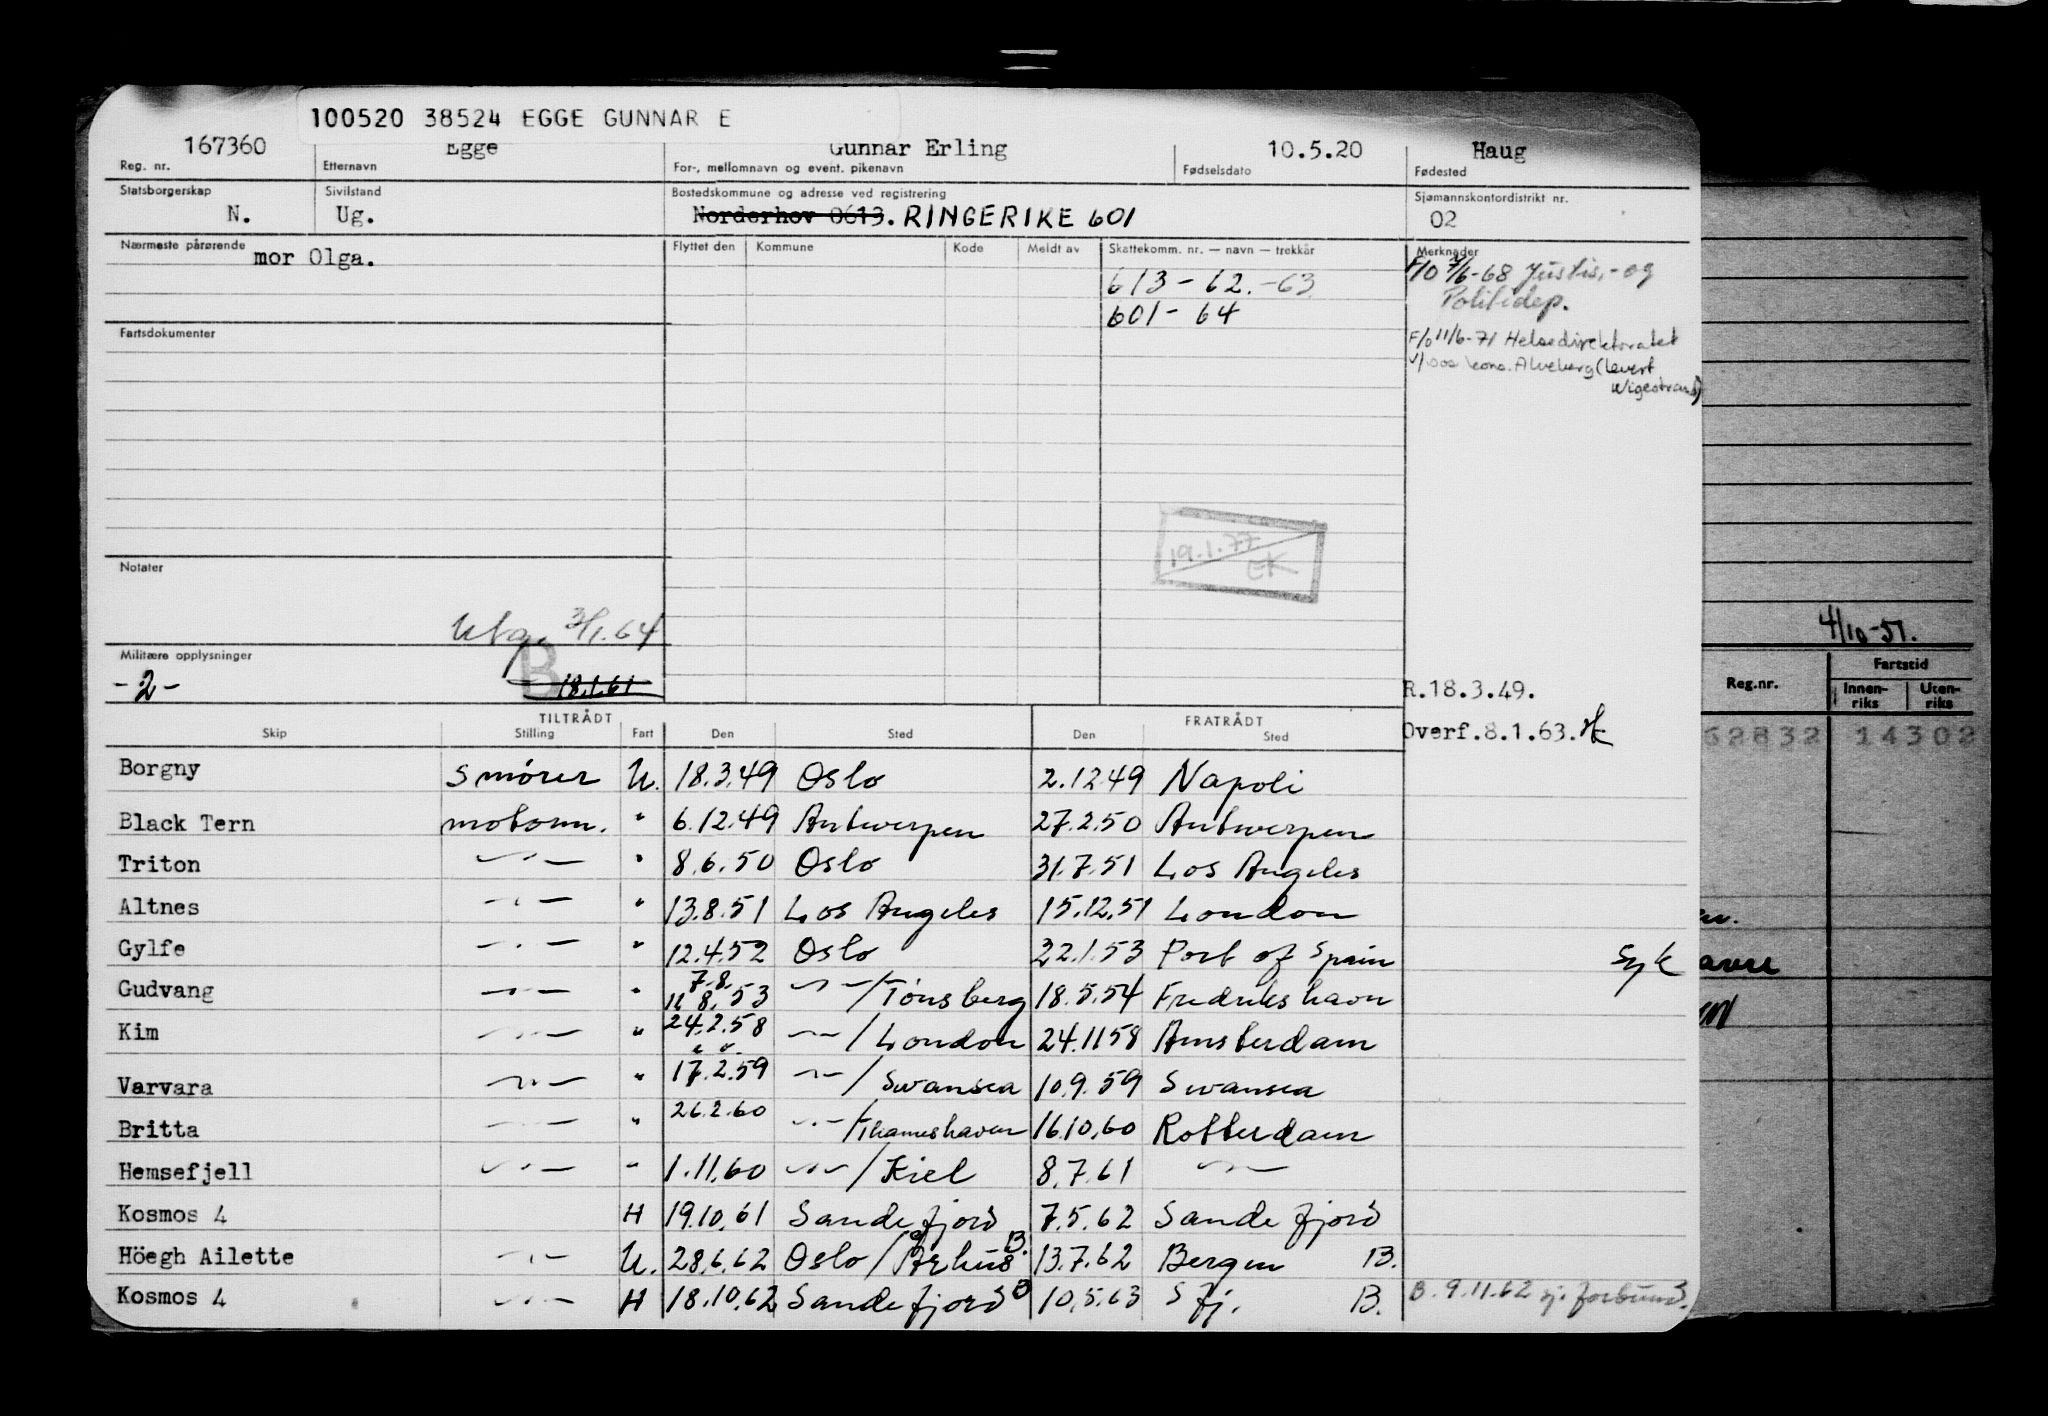 100520 38524 EGGE GUNNAR E
167360 Egge Gunnar Erling 10.5.20 Haug
Reg. nr. Etternavn For-, mellomnavn og event. pikenavn Fødselsdato Fødested
Statsborgerskap Sivilstand Bostedskommune og adresse ved registrering Sjømannskontordistrikt nr.
N. Ug. Norderhov 0613. RINGERIKE 601 02
Nærmeste pårørende Flyttet den Kommune Kode Meldt av Skattekomm. nr. — navn — trekkår Merknader
mor Olga.
613 - 62. - 63
601 - 64
F/O 7/6-68 Justis,- og
Politidep.
F/o 11/6-71 Helsedirektoratet
Alveberg (levert
Wigestrand)
Fartsdokumenter
19.1.77
EK
Notater
Utg. 3/1.64
Militære opplysninger
-2- B 18.1.61
R.18.3.49.
Overf.8.1.63.
4/10-51.
Reg.nr. Fartstid
Innenriks Utenriks
62832 14302
TILTRÅDT FRATRÅDT
Skip Stilling Fart Den Sted Den Sted
Borgny Smører U. 18.3.49 Oslo 2.12.49 Napoli
Black Tern motorm. " 6.12.49 Antwerpen 27.2.50 Antwerpen
Triton —"— " 8.6.50 Oslo 31.7.51 Los Angeles
Altnes —"— " 13.8.51 Los Angeles 15.12.51 London
Gylfe —"— " 12.4.52 Oslo 22.1.53 Port of Spain Syk
Gudvang —"— " 7.8. 11.8.53 —"—/Tønsberg 18.5.54 Fredrikshavn
Kim —"— " 24.2.58 —"—/London 24.11.58 Amsterdam
Varvara —"— " 17.2.59 —"—/Swansea 10.9.59 Swansea
Britta —"— " 26.2.60 —"—/Thameshaven 16.10.60 Rotterdam
Hemsefjell —"— " 1.11.60 —"—/Kiel 8.7.61 —"—
Kosmos 4 H 19.10.61 Sandefjord 7.5.62 Sandefjord
Höegh Ailette —"— U. 28.6.62 Oslo/Århus B. 13.7.62 Bergen B.
Kosmos 4 —"— H 18.10.62 Sandefjord B 10.5.63 Sfj. B. B. 9.11.62 sj. forbund.